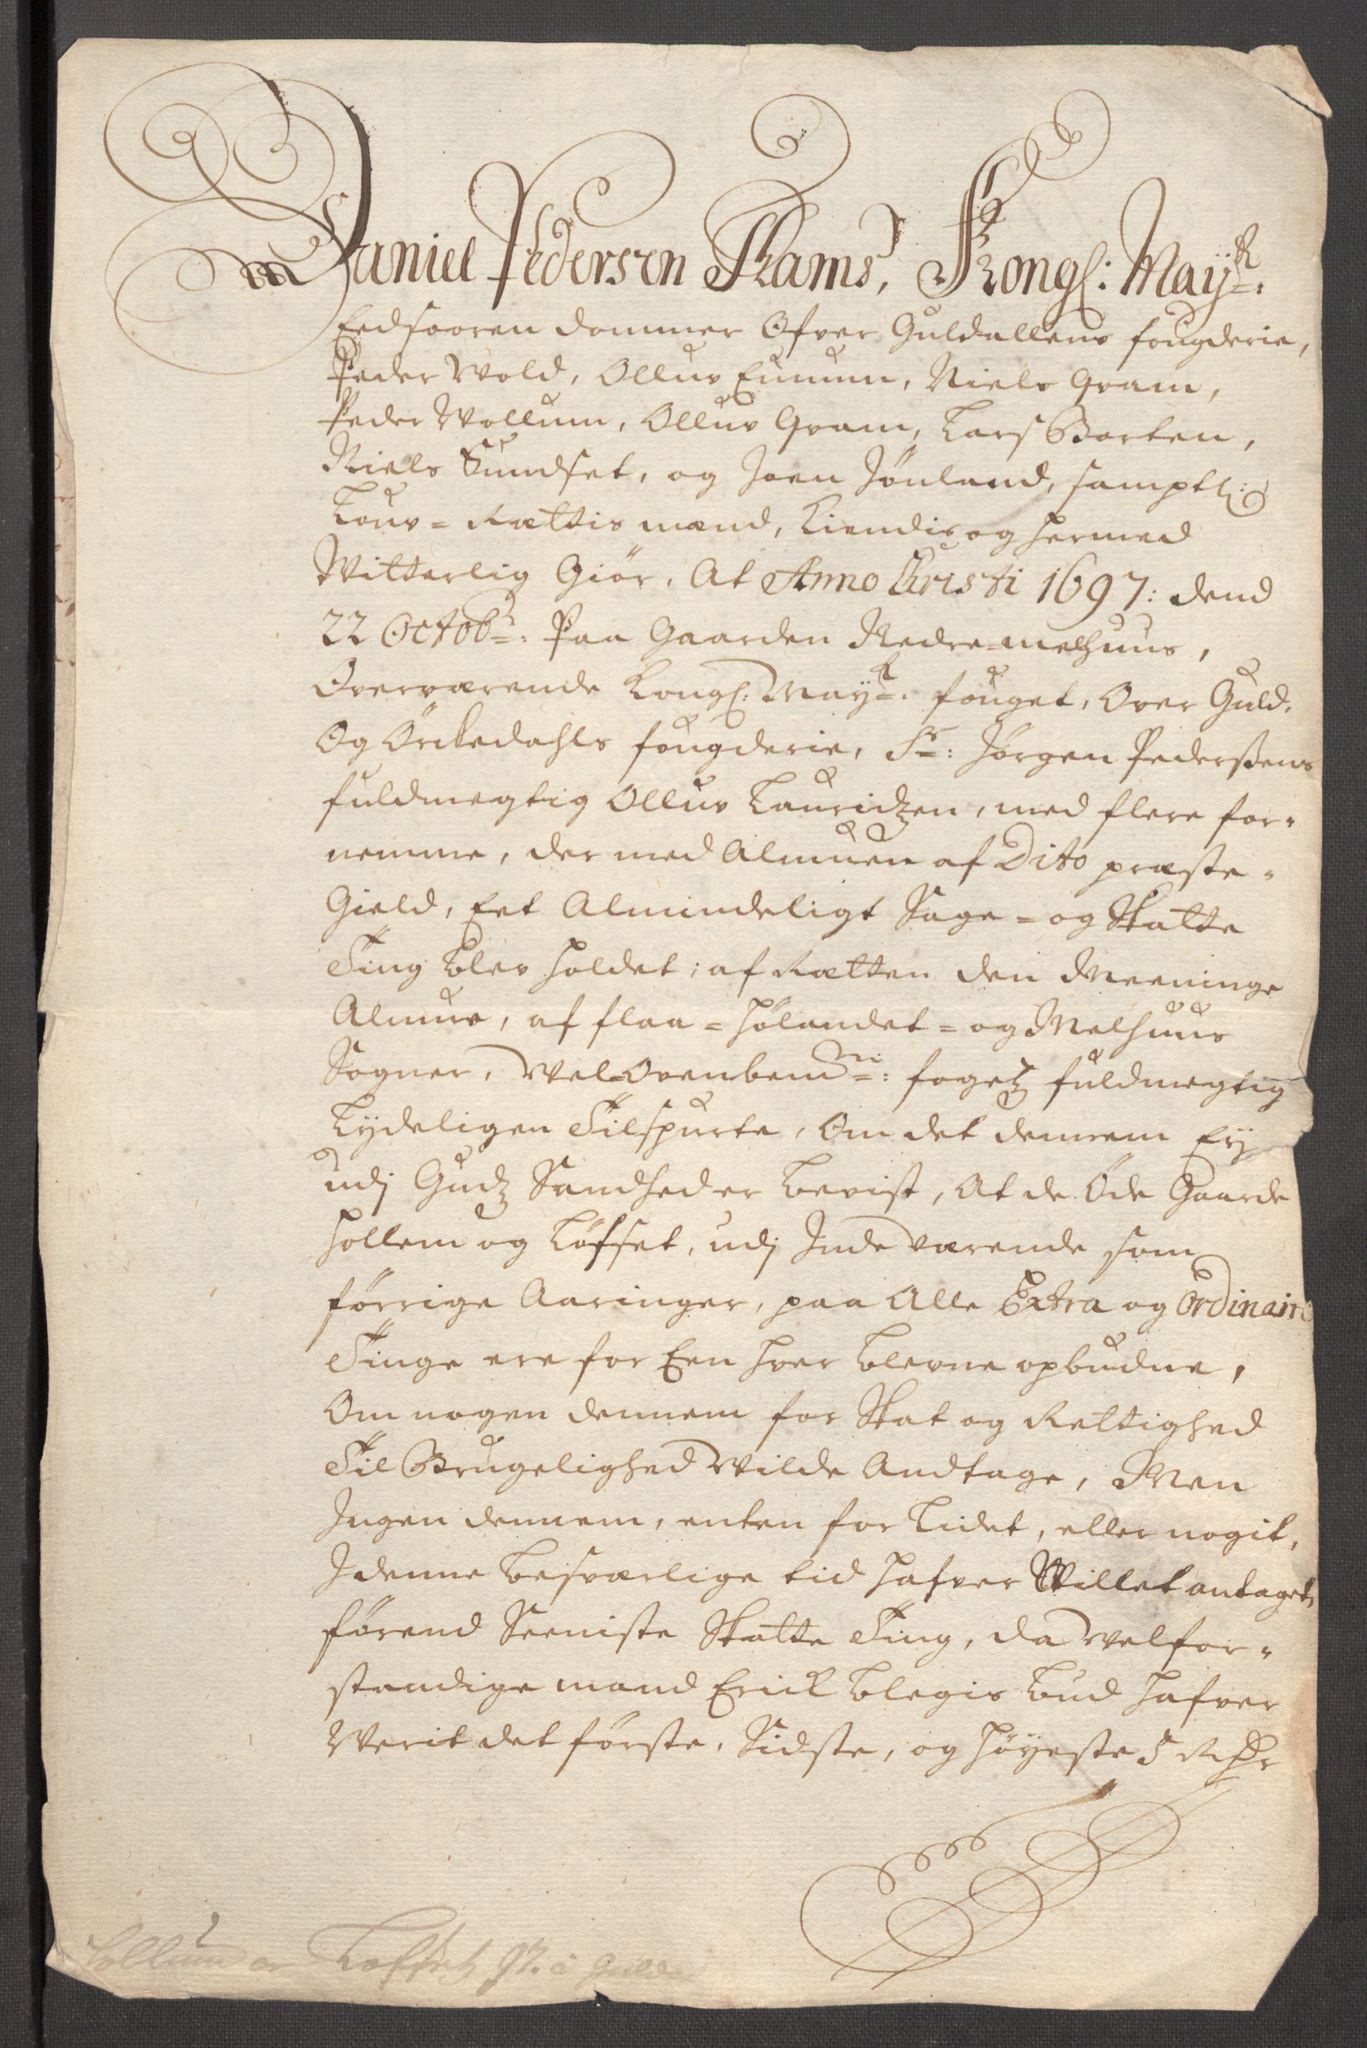 Daniel Pedersen Rams, Kongl: Mayts:
Eedsvoren dommer Ofver Guldallens fougderie,
Peder Wold, Olluv Eunum, Niels Gram,
Peder Wollum, Olluv Gram, Lars Borten,
Niels Sundset, og Joen Jönland, samptl:
Louv-Rættis mænd, Kiendis og hermed
Witterlig Giör, At Anno Christi 1697: dend
22 Octobr: Paa Gaarden Nedre-melhuus,
Overværende Kongl: Mayts: fouget, Over Guld,
Og Örckedahls fougderie, Sr: Jörgen Pederssens
fuldmegtig Olluv Lauridzen, med flere for-
nemme, der med Almuen af Dito præste-
Gield, Eet Almindeligt Sage- og Skatte
Ting blev holdet; af Rætten den Meeninge
Almue, af flaa- Hølandet- og Melhuus
Sogner, Wel-Ovenbemte: fogetz fuldmegtig
Lydeligen Tilspurte, Om det dennem Ey
udj Gudz Sandhed er bevist, At de Öde Gaarde
Hollem og Löfset, udj Inde værende som
förrige Aaringer, paa Alle Extra og Ordinaire
Tinge ere for Een hver blevne opbudne,
Om nogen dennem for Skat og Rettighed
Til Brugelighed Wilde Andtage, Men
Ingen dennem, enten for Lidet, eller nogit,
J denne besværlige tid hafver Willet antaget,
förend Seeniste Skatte Ting, da Welfor-
standige mand Erick Blegis bud hafver
Werit det förste, Sidste, og höyeste 5 Rdr
Hollum oc Løfset 97. i Guld